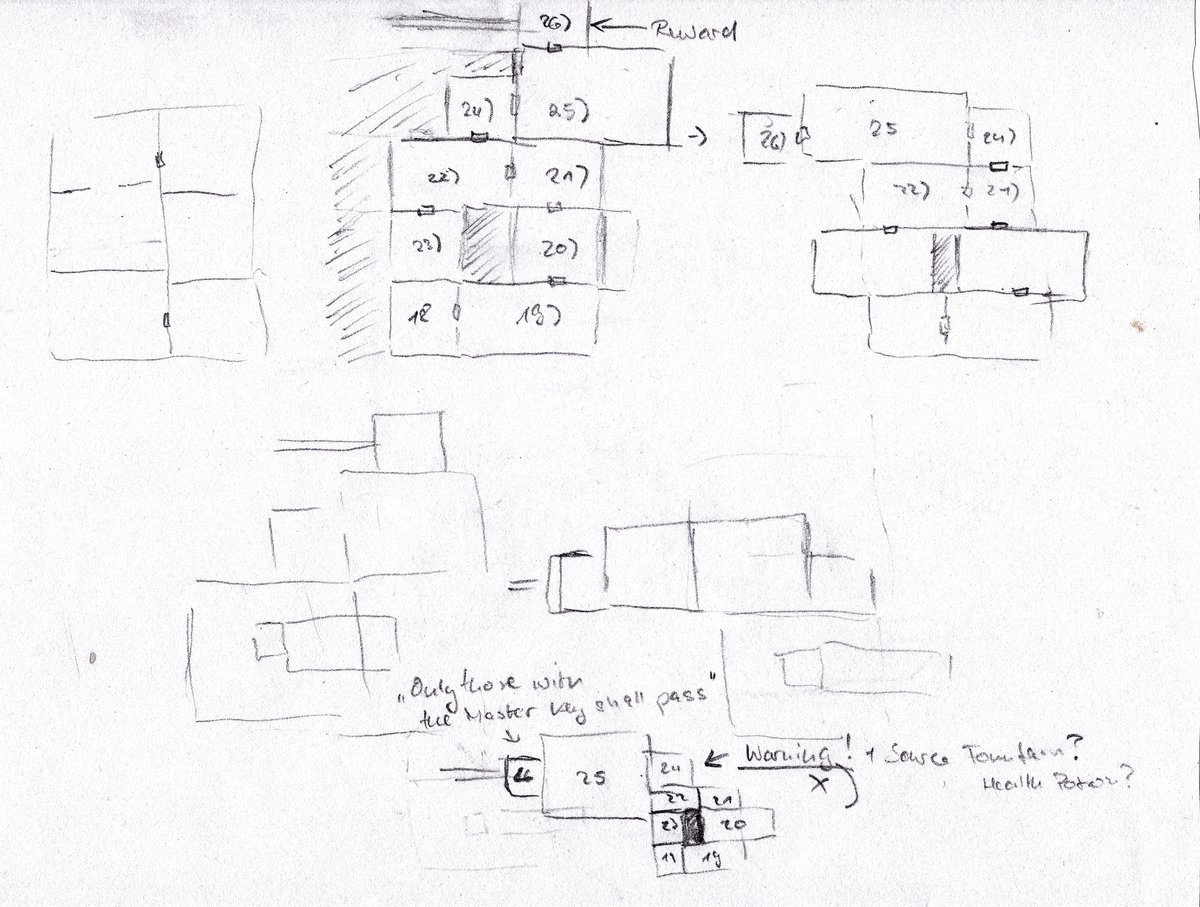 26) ← Reward
24) 25)
22) 21)
23) 20)
18 19)
→
26) 25 24)
22) 21)
=
„Only those with
the Master Key shall pass"
26 25 24 ← Warning! + Source
Health Potion?
X
22 21
23 20
19